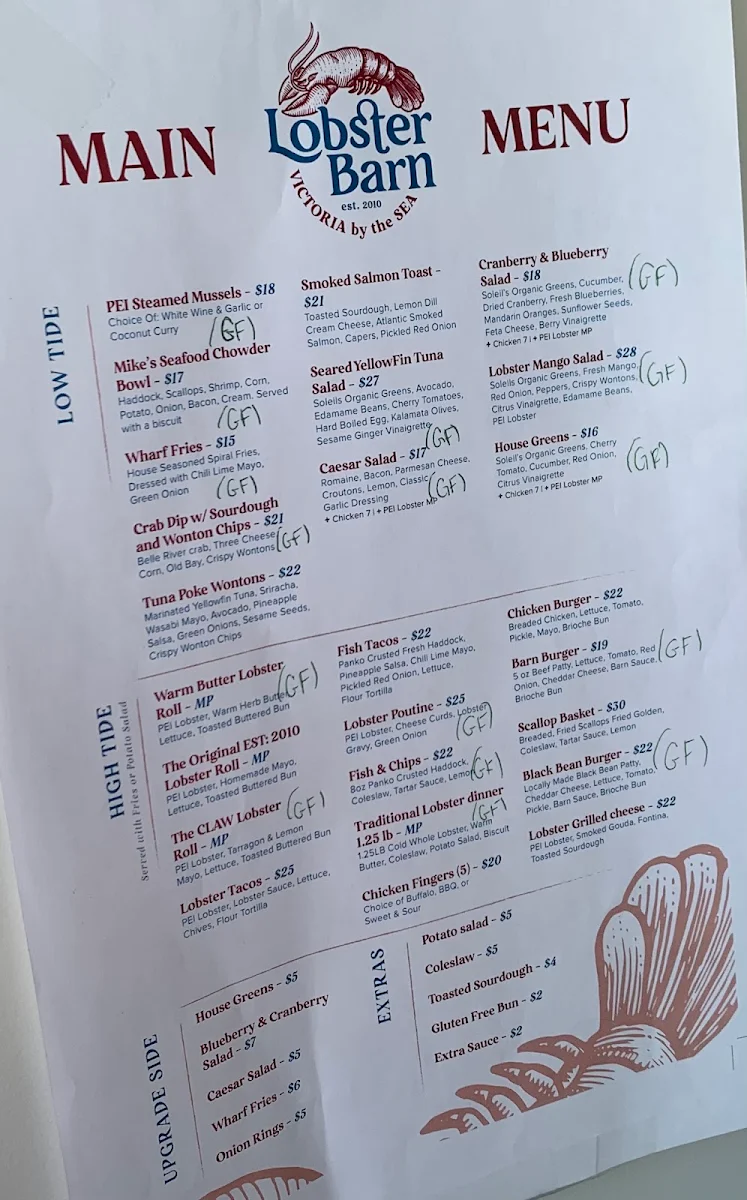 MAIN
Lobster
Barn
est. 2010
VICTORIA by the SEA
MENU
LOW TIDE
PEI Steamed Mussels - $18
Choice Of: White Wine & Garlic or
Coconut Curry (GF)
Mike's Seafood Chowder
Bowl - $17
Haddock, Scallops, Shrimp, Corn,
Potato, Onion, Bacon, Cream. Served
with a biscuit (GF)
Wharf Fries - $15
House Seasoned Spiral Fries,
Dressed with Chili Lime Mayo,
Green Onion (GF)
Crab Dip w/ Sourdough
and Wonton Chips - $21
Belle River crab, Three Cheese,
Corn, Old Bay, Crispy Wontons (GF)
Tuna Poke Wontons - $22
Marinated Yellowfin Tuna, Sriracha,
Wasabi Mayo, Avocado, Pineapple
Salsa, Green Onions, Sesame Seeds,
Crispy Wonton Chips
Smoked Salmon Toast -
$21
Toasted Sourdough, Lemon Dill
Cream Cheese, Atlantic Smoked
Salmon, Capers, Pickled Red Onion
Seared YellowFin Tuna
Salad - $27
Soleils Organic Greens, Avocado,
Edamame Beans, Cherry Tomatoes,
Hard Boiled Egg, Kalamata Olives,
Sesame Ginger Vinaigrette (GF)
Caesar Salad - $17
Romaine, Bacon, Parmesan Cheese,
Croutons, Lemon, Classic
Garlic Dressing (GF)
+ Chicken 7 | + PEI Lobster MP
Cranberry & Blueberry
Salad - $18 (GF)
Soleil's Organic Greens, Cucumber,
Dried Cranberry, Fresh Blueberries,
Mandarin Oranges, Sunflower Seeds,
Feta Cheese, Berry Vinaigrette
+ Chicken 7 | + PEI Lobster MP
Lobster Mango Salad - $28
Soleils Organic Greens, Fresh Mango,
Red Onion, Peppers, Crispy Wontons, (GF)
Citrus Vinaigrette, Edamame Beans,
PEI Lobster
House Greens - $16
Soleil's Organic Greens, Cherry
Tomato, Cucumber, Red Onion, (GF)
Citrus Vinaigrette
+ Chicken 7 | + PEI Lobster MP
HIGH TIDE
Served with Fries or Potato Salad
Warm Butter Lobster
Roll - MP (GF)
PEI Lobster, Warm Herb Butter,
Lettuce, Toasted Buttered Bun
The Original EST: 2010
Lobster Roll - MP
PEI Lobster, Homemade Mayo,
Lettuce, Toasted Buttered Bun
The CLAW Lobster (GF)
Roll - MP
PEI Lobster, Tarragon & Lemon
Mayo, Lettuce, Toasted Buttered Bun
Lobster Tacos - $25
PEI Lobster, Lobster Sauce, Lettuce,
Chives, Flour Tortilla
Fish Tacos - $22
Panko Crusted Fresh Haddock,
Pineapple Salsa, Chili Lime Mayo,
Pickled Red Onion, Lettuce,
Flour Tortilla
Lobster Poutine - $25
PEI Lobster, Cheese Curds, Lobster
Gravy, Green Onion (GF)
Fish & Chips - $22
8oz Panko Crusted Haddock,
Coleslaw, Tartar Sauce, Lemon (GF)
Traditional Lobster dinner
1.25 lb - MP (GF)
1.25LB Cold Whole Lobster, Warm
Butter, Coleslaw, Potato Salad, Biscuit
Chicken Fingers (5) - $20
Choice of Buffalo, BBQ, or
Sweet & Sour
Chicken Burger - $22
Breaded Chicken, Lettuce, Tomato,
Pickle, Mayo, Brioche Bun
Barn Burger - $19
5 oz Beef Patty, Lettuce, Tomato, Red (GF)
Onion, Cheddar Cheese, Barn Sauce,
Brioche Bun
Scallop Basket - $30
Breaded, Fried Scallops Fried Golden,
Coleslaw, Tartar Sauce, Lemon
Black Bean Burger - $22 (GF)
Locally Made Black Bean Patty,
Cheddar Cheese, Lettuce, Tomato,
Pickle, Barn Sauce, Brioche Bun
Lobster Grilled cheese - $22
PEI Lobster, Smoked Gouda, Fontina,
Toasted Sourdough
UPGRADE SIDE
House Greens - $5
Blueberry & Cranberry
Salad - $7
Caesar Salad - $5
Wharf Fries - $6
Onion Rings - $5
EXTRAS
Potato salad - $5
Coleslaw - $5
Toasted Sourdough - $4
Gluten Free Bun - $2
Extra Sauce - $2